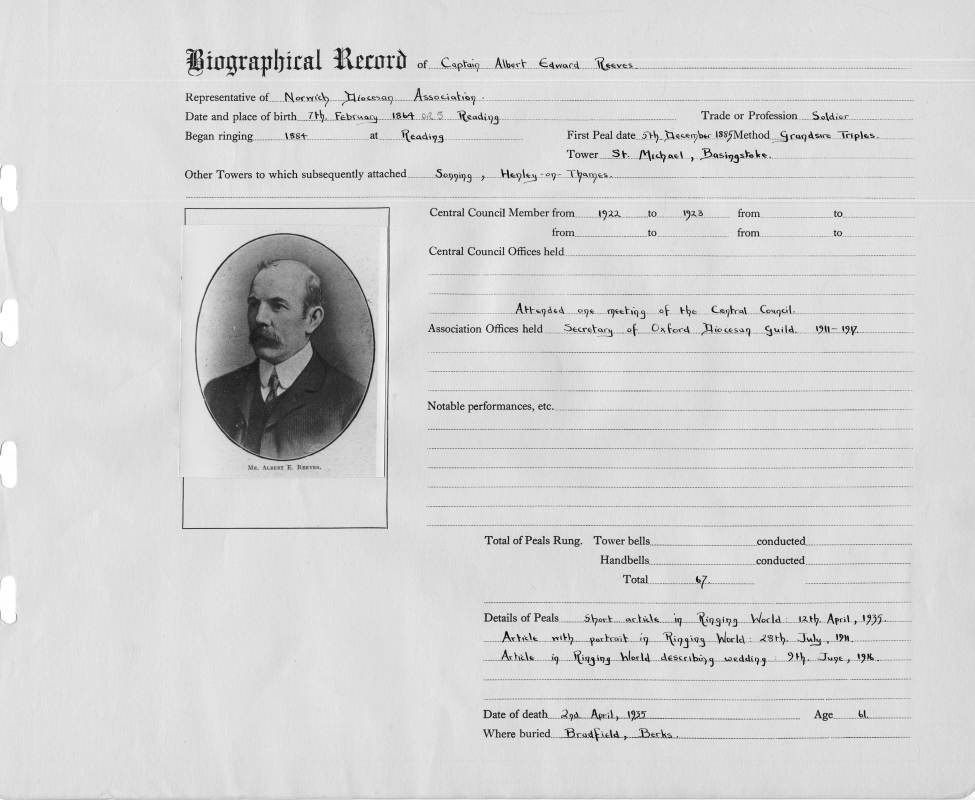 Biographical Record of Captain Albert Edward Reeves
Representative of Norwich Diocesan Association.
Date and place of birth 7th. February 1864 or 5 Reading Trade or Profession Soldier
Began ringing 1884 at Reading First Peal date 5th. December 1885 Method Grandsire Triples.
Tower St. Michael, Basingstoke.
Other Towers to which subsequently attached Sonning, Henley-on-Thames.
Central Council Member from 1922 to 1923 from to
from to from to
Central Council Offices held
Attended one meeting of the Central Council.
Association Offices held Secretary of Oxford Diocesan Guild. 1911-1917.
Notable performances, etc.
Mr. Albert E. Reeves.
Total of Peals Rung. Tower bells conducted
Handbells conducted
Total 67.
Details of Peals Short article in Ringing World: 12th. April, 1935.
Article with portrait in Ringing World: 28th. July, 1911.
Article in Ringing World describing wedding: 9th. June, 1916.
Date of death 2nd. April, 1935 Age 61.
Where buried Bradfield, Berks.